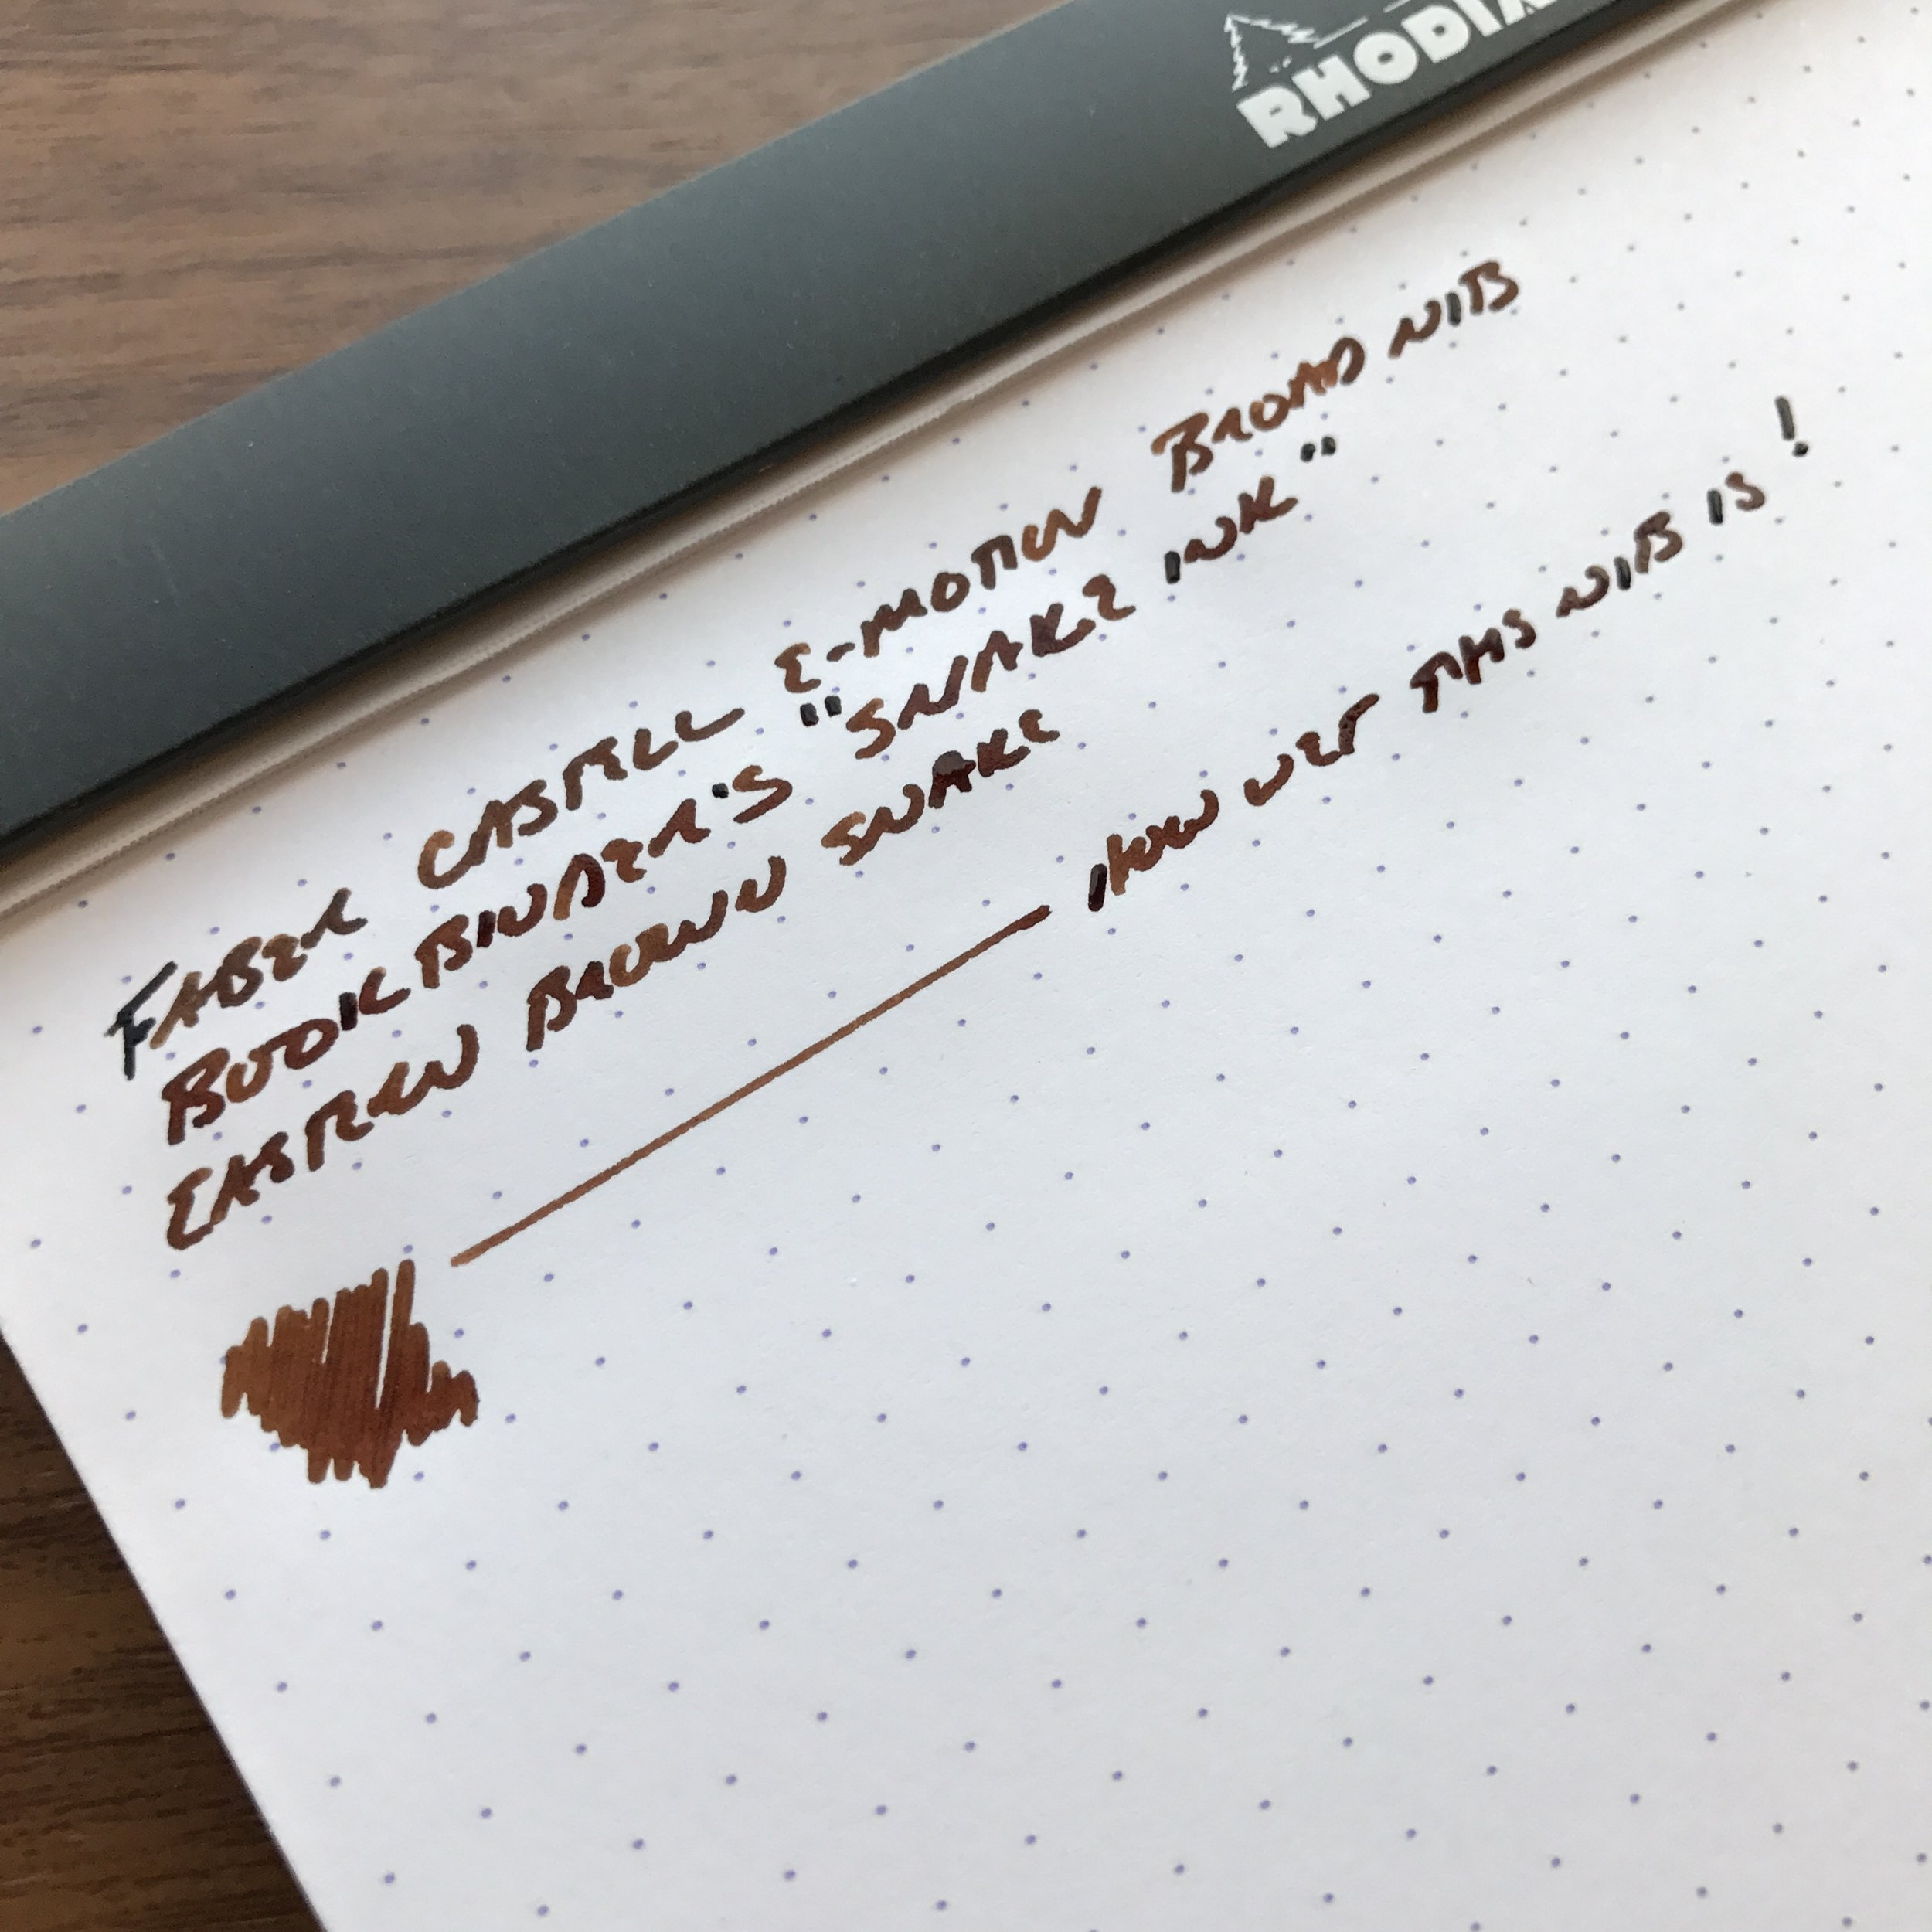 RHODIA
FABER CASTELL E-MOTION BROAD NIB
BOOKBINDER'S "SNAKE INK"
EASTERN BROWN SNAKE
HOW WET THIS NIB IS!